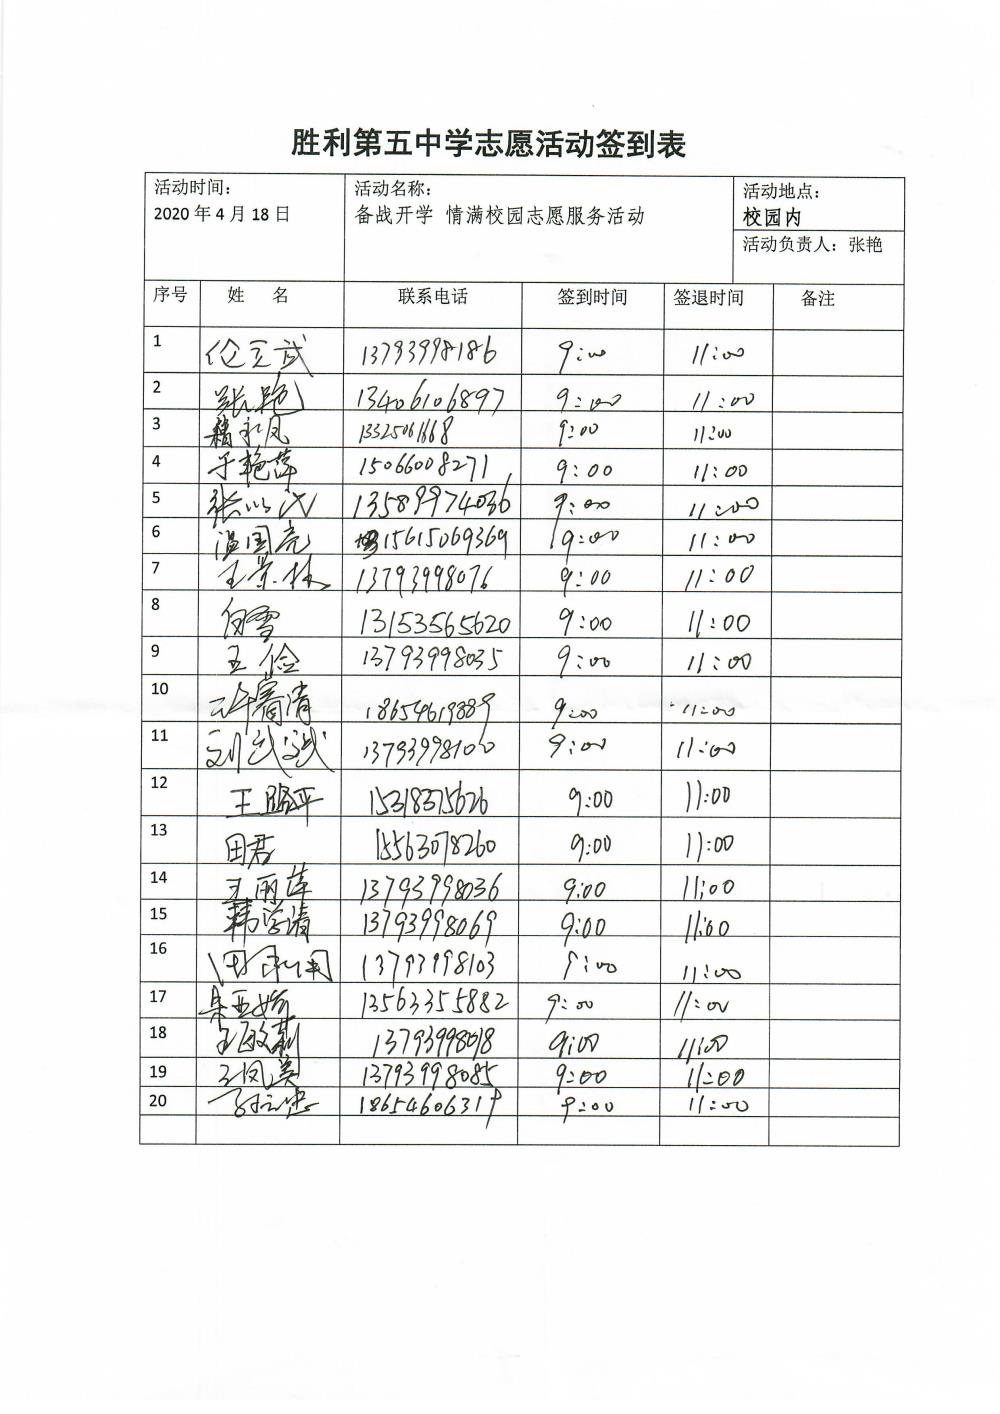 胜利第五中学志愿活动签到表
活动时间：
2020 年 4 月 18 日
活动名称：
备战开学 情满校园志愿服务活动
活动地点：
校园内
活动负责人：张艳
序号 姓 名 联系电话 签到时间 签退时间 备注
1 13793998186 9:00 11:00
2 张艳 13406106897 9:00 11:00
3 13325061668 9:00 11:00
4 于艳萍 15066008271 9:00 11:00
5 13589974036 9:00 11:00
6 温国亮 15615069369 9:00 11:00
7 王景林 13793998076 9:00 11:00
8 何雪 13153565620 9:00 11:00
9 王俭 13793998035 9:00 11:00
10 18654619889 9:00 11:00
11 13793998100 9:00 11:00
12 15318375626 9:00 11:00
13 田君 15563078260 9:00 11:00
14 王丽萍 13793998036 9:00 11:00
15 韩学清 13793998069 9:00 11:00
16 13793998103 9:00 11:00
17 13563355882 9:00 11:00
18 13793998018 9:00 11:00
19 王凤美 13793998085 9:00 11:00
20 18654606317 9:00 11:00